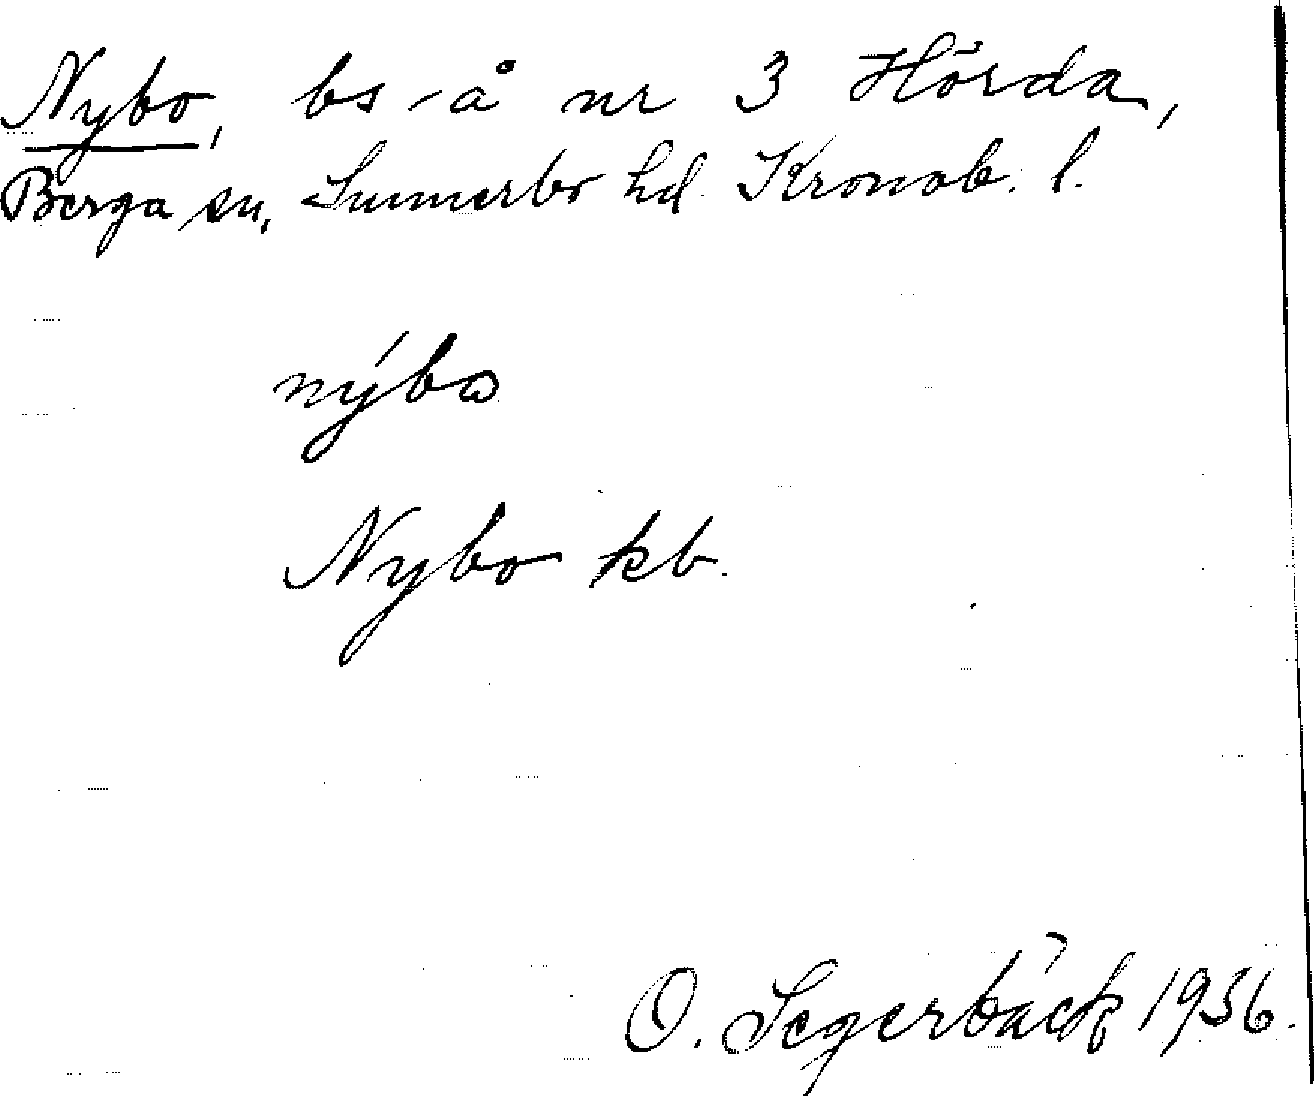 Nybo, bs å nr 3 Hörda,
Berga sn, Sunnerbo hd. Kronob. l.
nýbo
Nybo kb.
O. Segerbäck 1936.